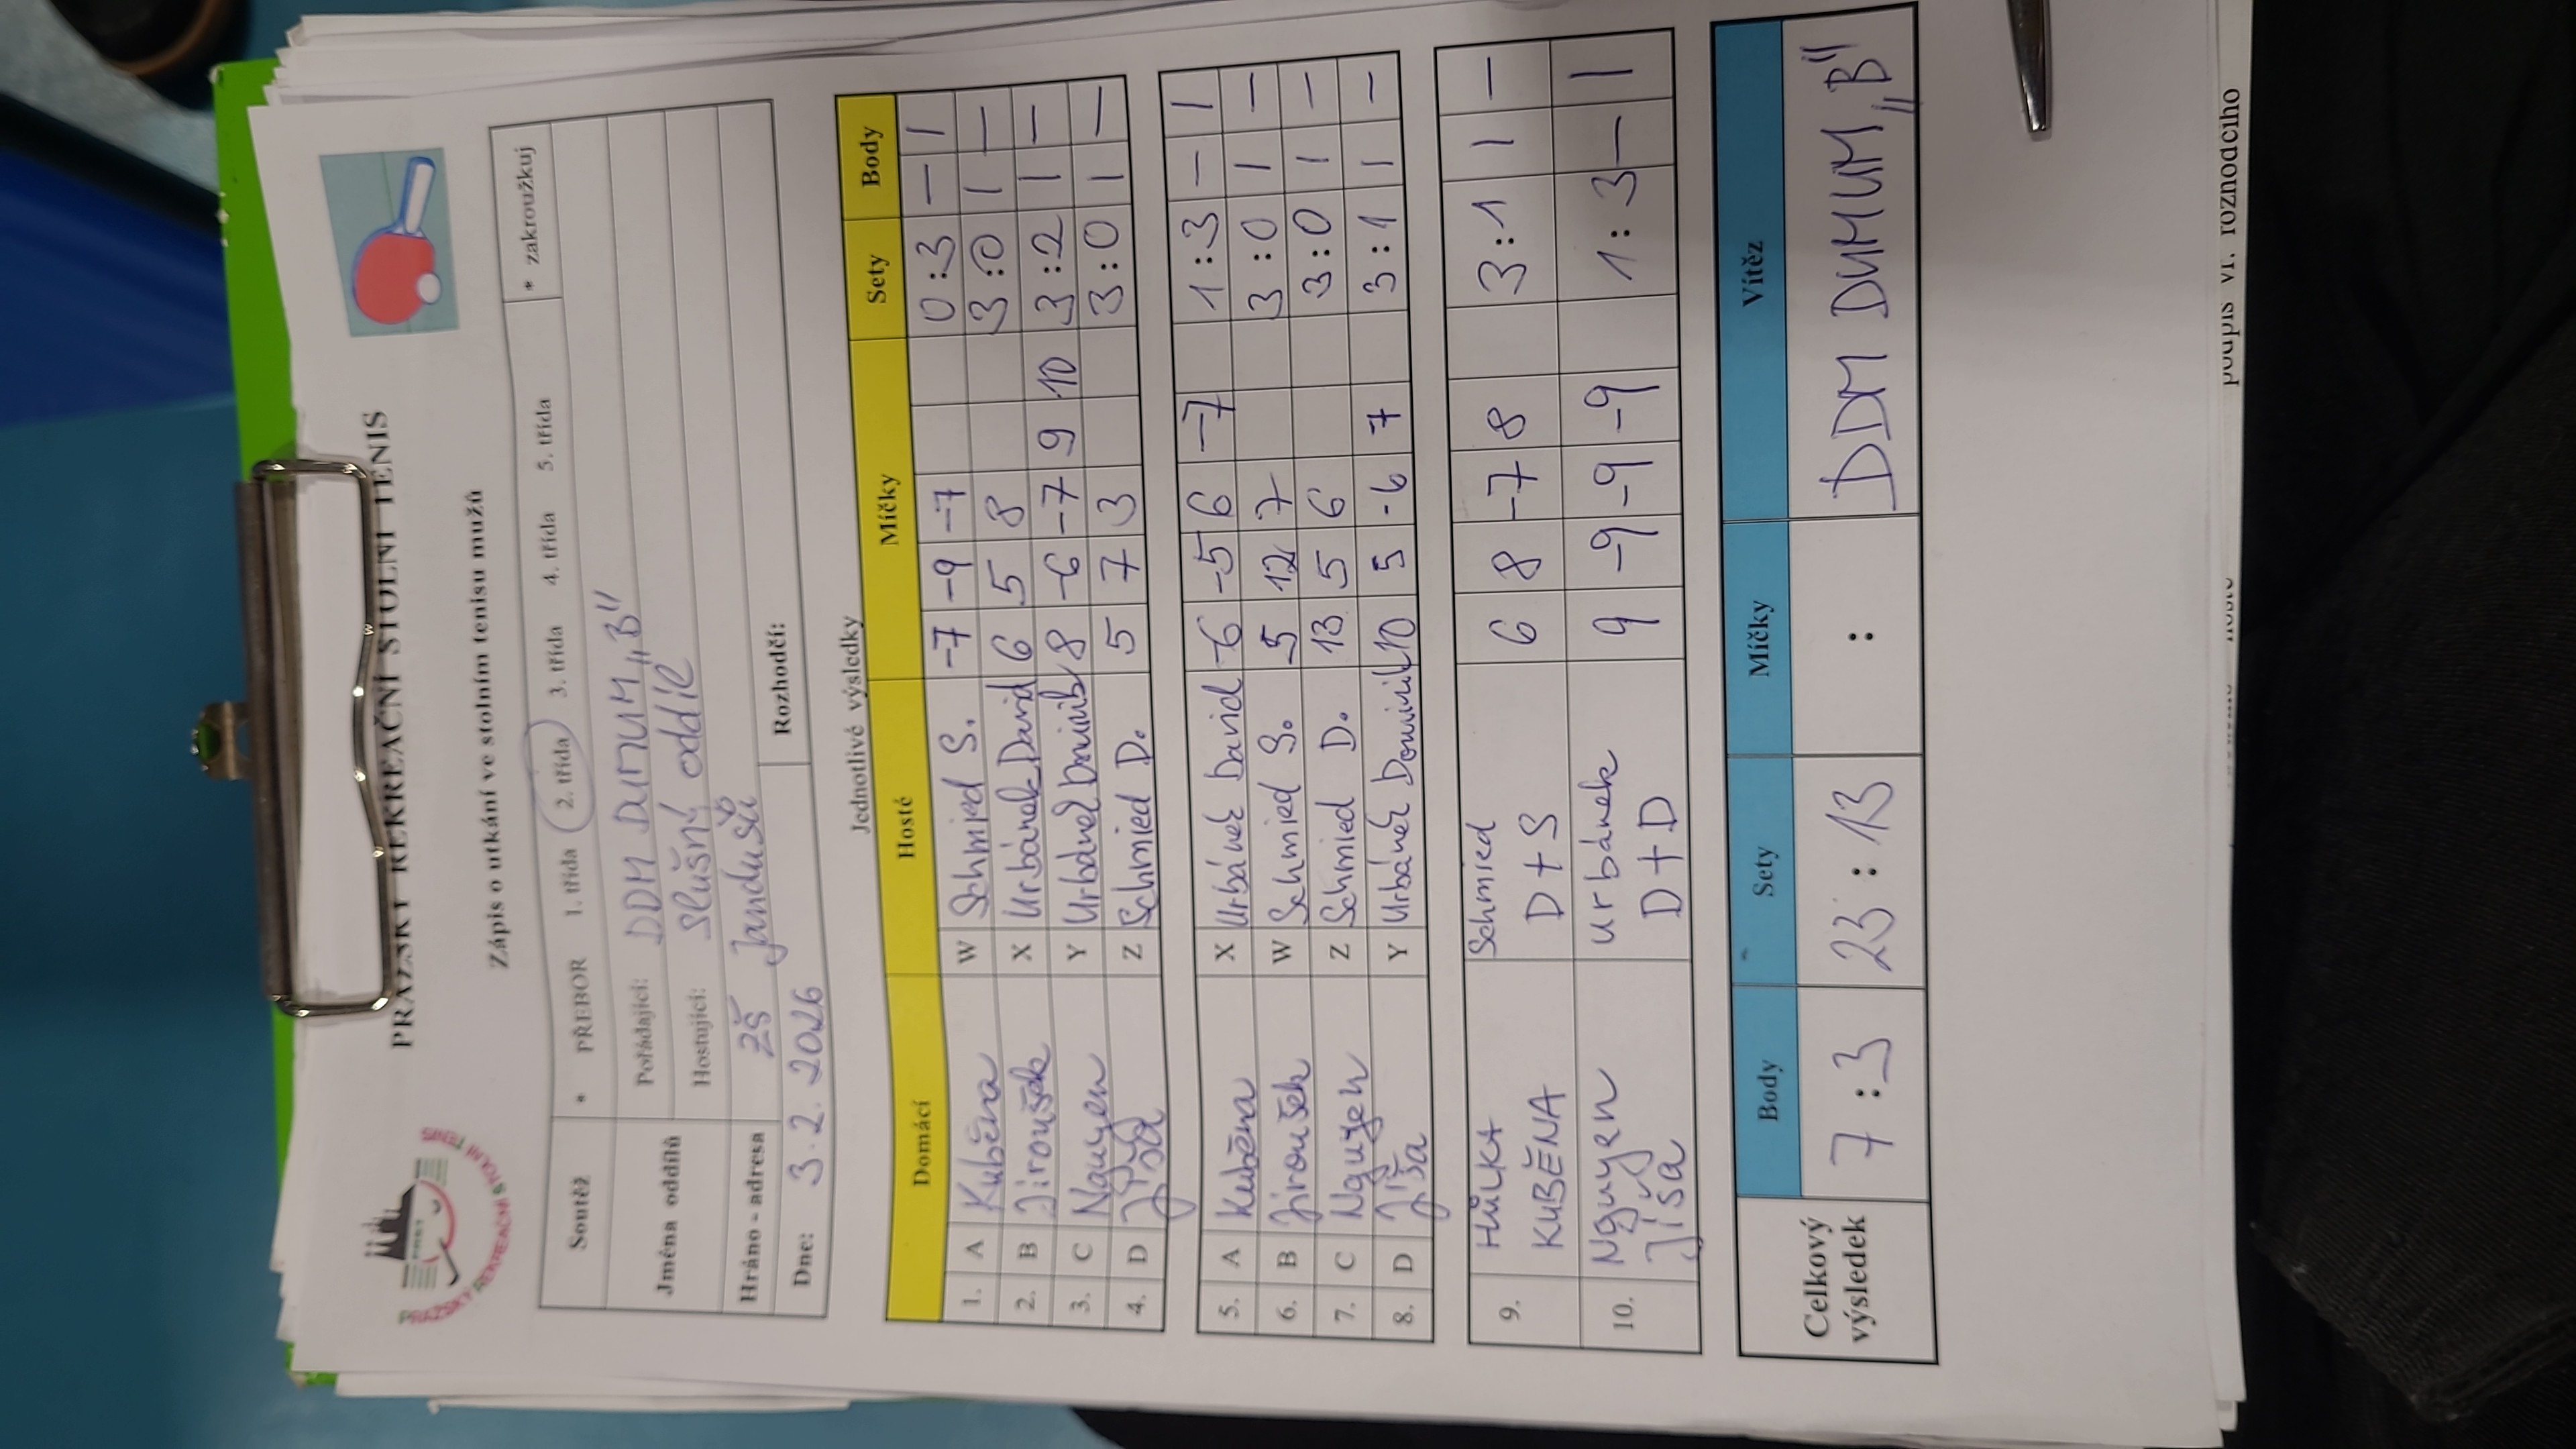 PRAŽSKÝ REKREAČNÍ STOLNÍ TENIS
Zápis o utkání ve stolním tenisu mužů
Soutěž * PŘEBOR 1. třída 2. třída 3. třída 4. třída 5. třída * zakroužkuj
Jména oddílů Pořádající: DDM DUMUM „B"
Hostující: Slušný oddíl
Hráno - adresa ZŠ Jandusů
Dne: 3. 2. 2026 Rozhodčí:
Jednotlivé výsledky
Domácí Hosté Míčky Sety Body
1. A Kuběna W Schmied S. -7 -9 -7 0:3 – 1
2. B Jiroušek X Urbánek David 6 5 8 3:0 1 –
3. C Nguyen Y Urbánek Dominik 8 -6 -7 9 10 3:2 1 –
4. D Jíša Z Schmied D. 5 7 3 3:0 1 –
5. A Kuběna X Urbánek David -6 -5 6 -7 1:3 – 1
6. B Jiroušek W Schmied S. 5 12 7 3:0 1 –
7. C Nguyen Z Schmied D. 13 5 6 3:0 1 –
8. D Jíša Y Urbánek Dominik 10 5 -6 7 3:1 1 –
9. HŮLKA Schmied 6 8 -7 8 3:1 1 –
KUBĚNA D+S
10. Nguyen Urbánek 9 -9 -9 -9 1:3 – 1
Jíša D+D
Celkový výsledek Body Sety Míčky Vítěz
7:3 23:13 : DDM DUMUM „B"
podpis vr. rozhodčího